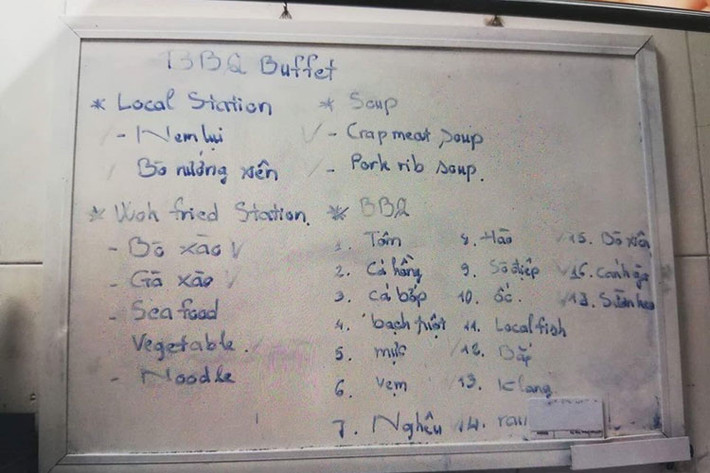 BBQ Buffet
* Local Station
- Nem lụi
Bò nướng xiên
* Woh fried Station.
- Bò xào V
- Gà xào V
- Seafood
Vegetable.
- Noodle
* Soup
- Crap meat soup
- Pork rib soup.
* BBQ
1. Tôm
2. Cá hồng
3. cá bớp
4. bạch tuột
5. mực
6. Vẹm
7. Nghêu
8. Hào
9. Sò điệp
10. ốc.
11. Local fish
12. Bắp
13. K lang
14. rau
15. Bò xiên
16. Cánh gà
17. Sườn heo